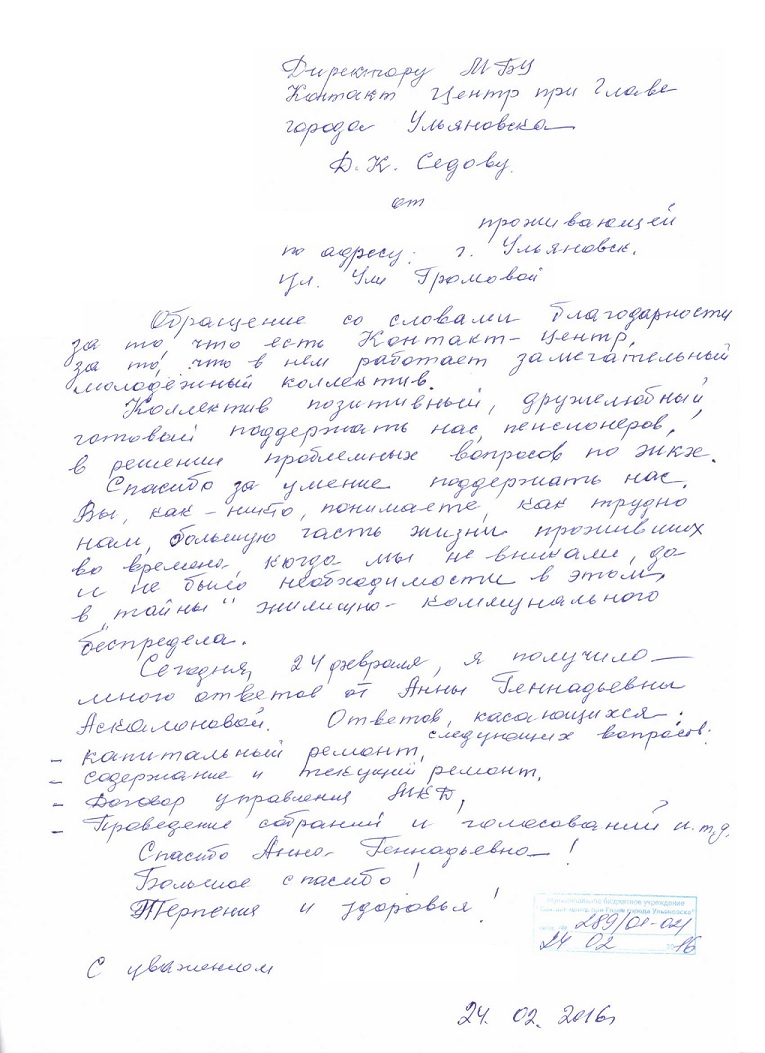 Директору МБУ
Контакт Центр при Главе
города Ульяновска
Д.К. Седову.
от
проживающей
по адресу: г. Ульяновск,
ул. Ули Громовой
Обращение со словами благодарности
за то, что есть Контакт-центр,
за то, что в нём работает замечательный
молодёжный коллектив.
Коллектив позитивный, дружелюбный,
готовый поддержать нас, пенсионеров,
в решении проблемных вопросов по ЖКХ.
Спасибо за умение поддержать нас.
Вы, как-никто, понимаете, как трудно
нам, большую часть жизни проживших
во времена, когда мы не вникали, да
и не было необходимости в этом,
в "тайны" жилищно-коммунального
беспредела.
Сегодня, 24 февраля, я получила
много ответов от Анны Геннадьевны
Аскалоновой. Ответов, касающихся
следующих вопросов:
- капитальный ремонт,
- содержание и текущий ремонт,
- Договор управления МКД,
- Проведение собраний и голосований и т.д.
Спасибо Анна Геннадьевна!
Большое спасибо!
Терпения и здоровья!
Муниципальное бюджетное учреждение
"Контакт-центр при Главе города Ульяновска"
289/01-02
24 02 2016
С уважением
24. 02. 2016г